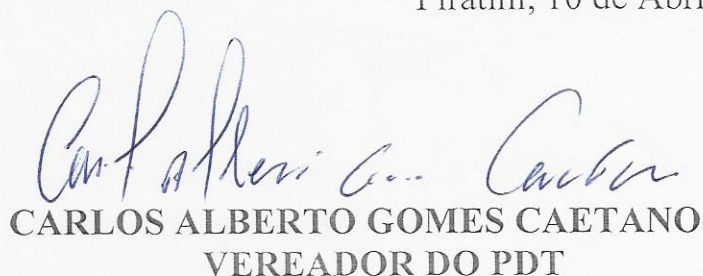 Piratini, 10 de Abri
CARLOS ALBERTO GOMES CAETANO
VEREADOR DO PDT